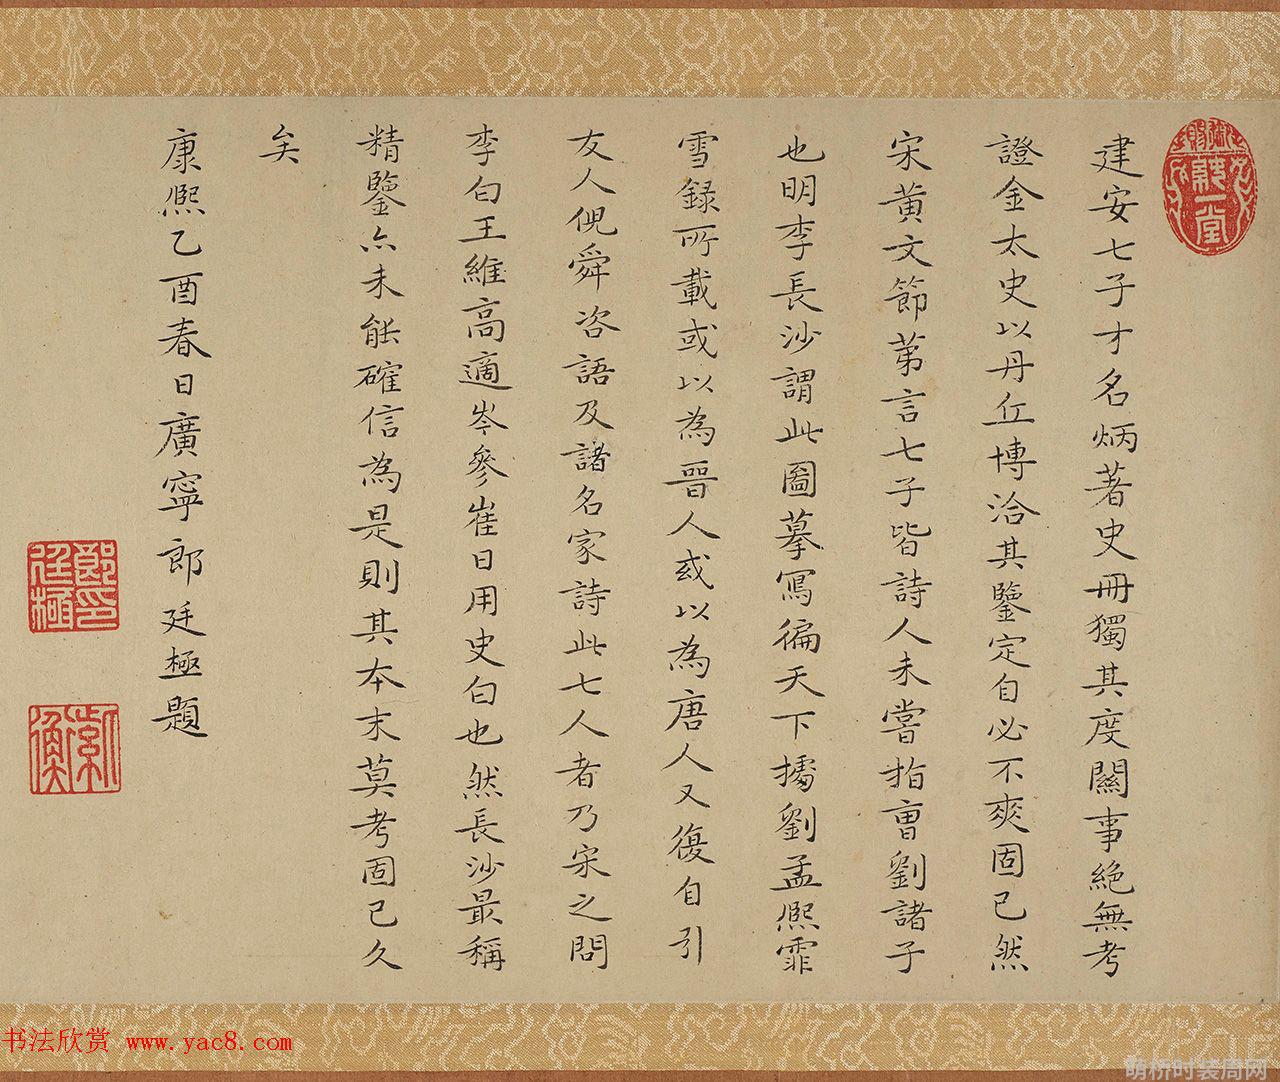 建安七子才名炳著史冊獨其度關事絕無考
證金太史以丹丘博洽其鑒定自必不爽固已然
宋黃文節苐言七子皆詩人未嘗指曹劉諸子
也明李長沙謂此圖摹寫徧天下據劉孟熙霏
雪録所載或以為晉人或以為唐人又復自引
友人倪舜咨語及諸名家詩此七人者乃宋之問
李白王維高適岑參崔日用史白也然長沙最稱
精鑒亦未能確信為是則其本末莫考固已久
矣
康熙乙酉春日廣寧郎廷極題
郎廷極印
紫衡
书法欣赏 www.yac8.com
萌桥时装周网